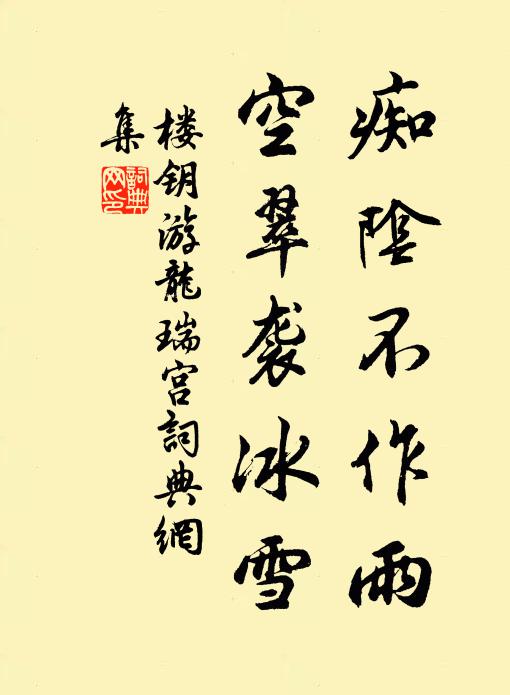 痴陰不作雨
空翠袭冰雪
楼钥游龍瑞宫詞典網
集
詞典
网印